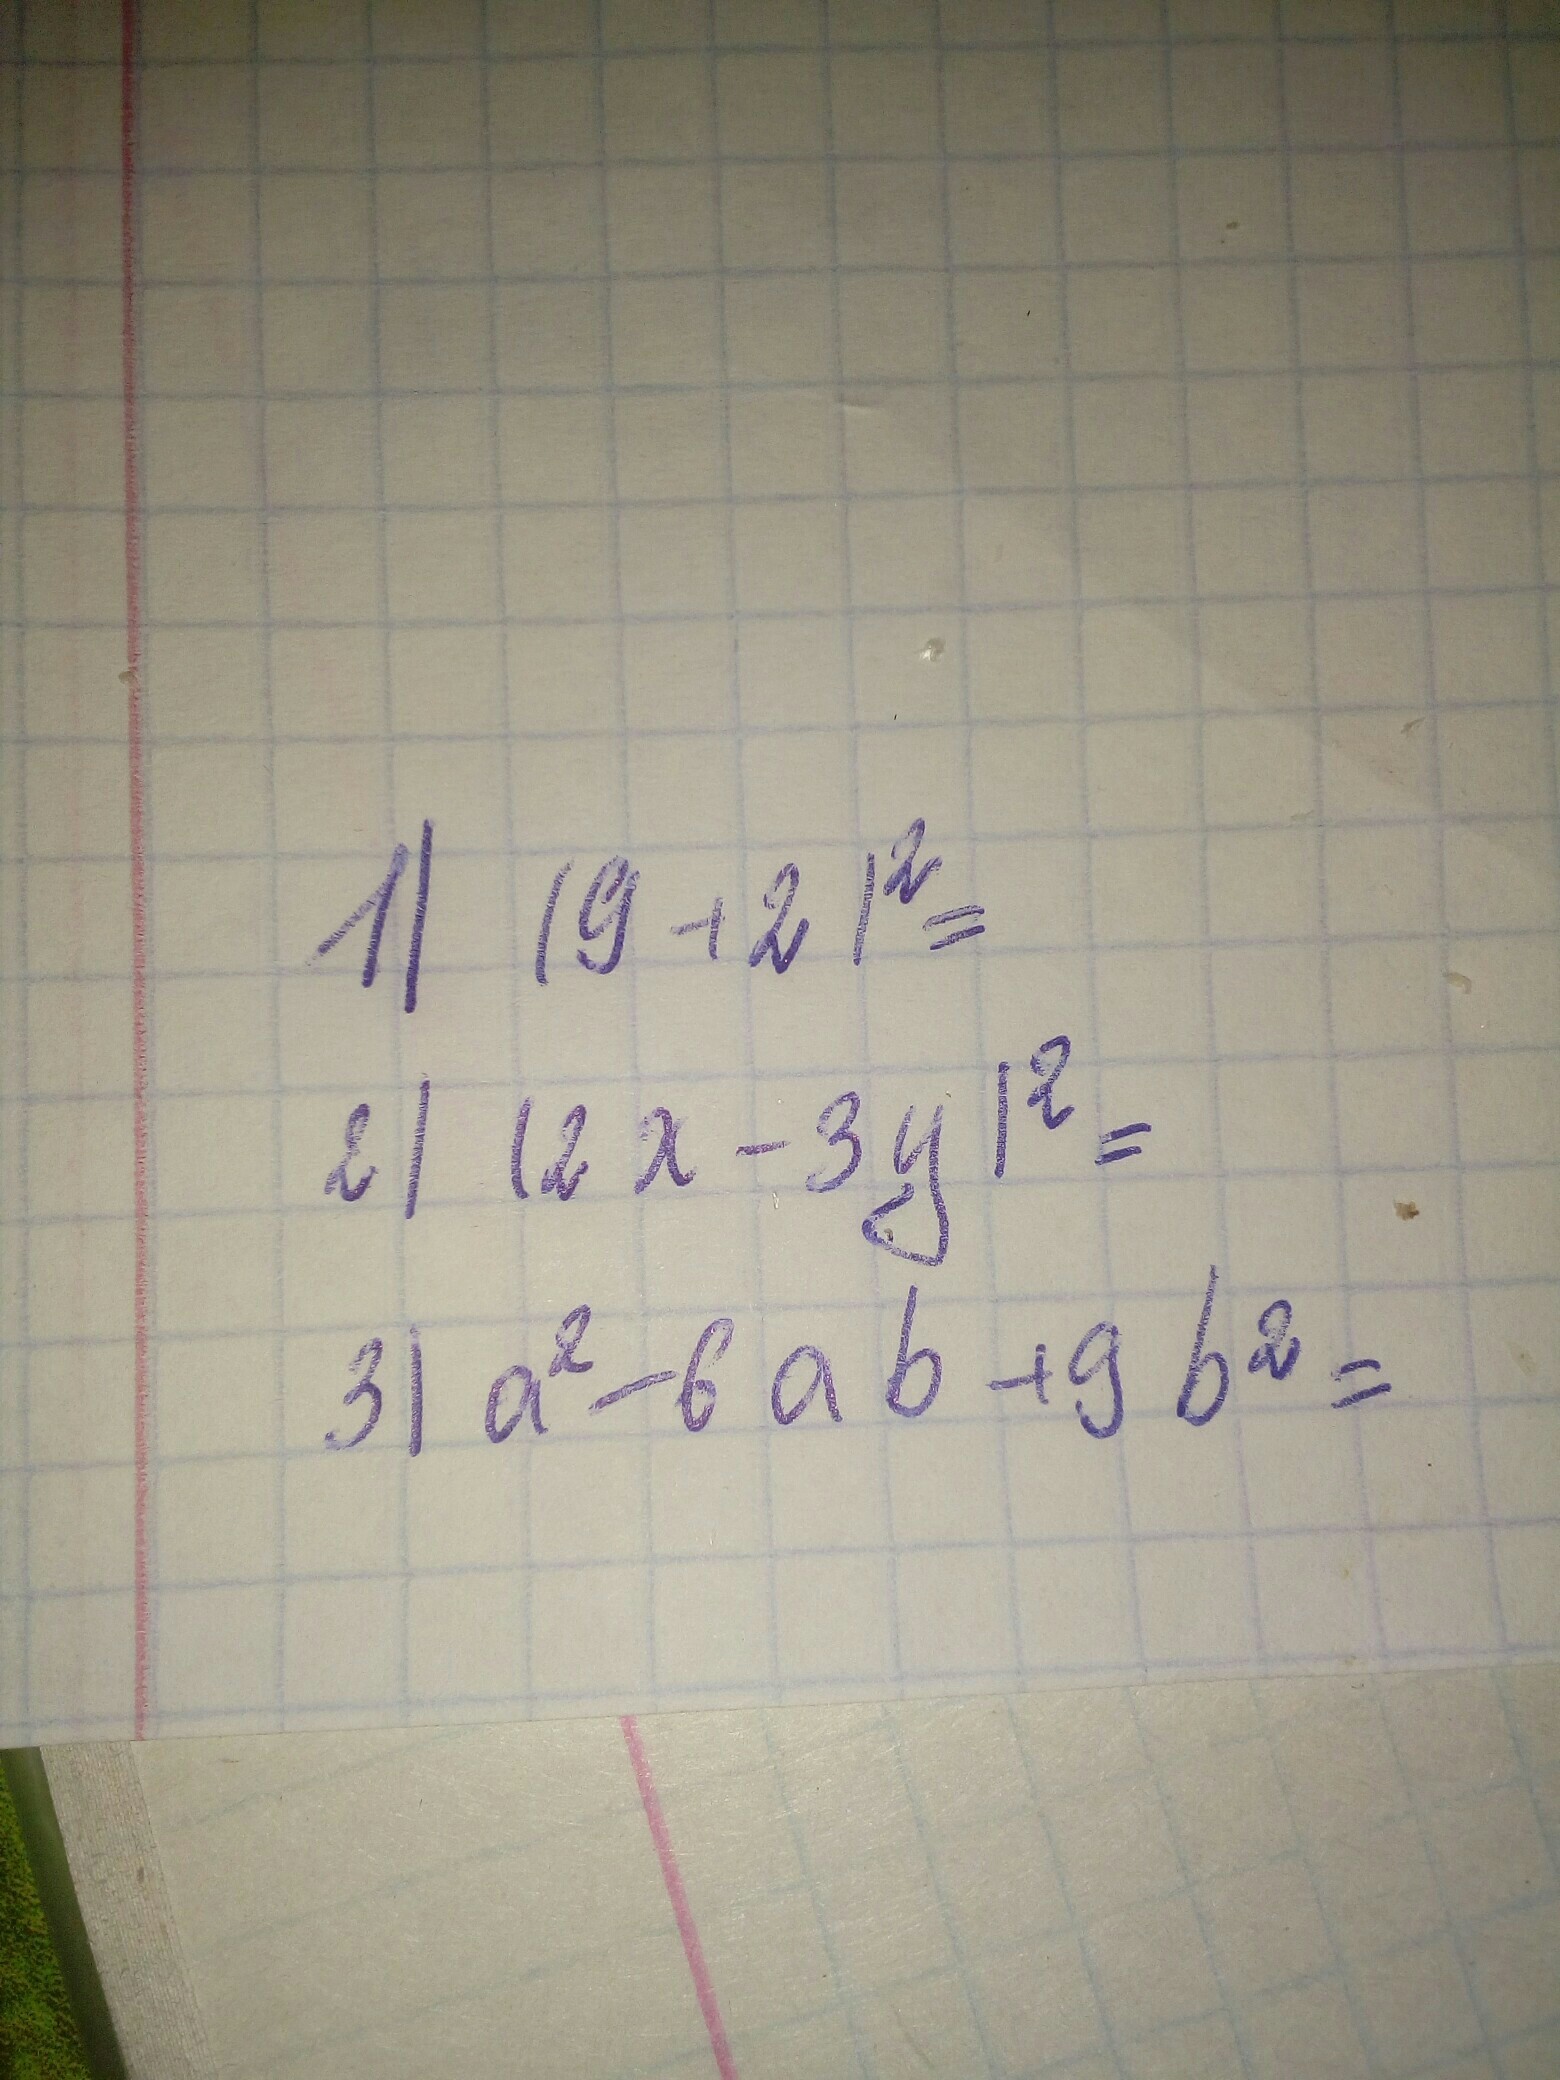 1) (9+2)²=
2) (2x-3y)²=
3) a²-6ab+9b²=